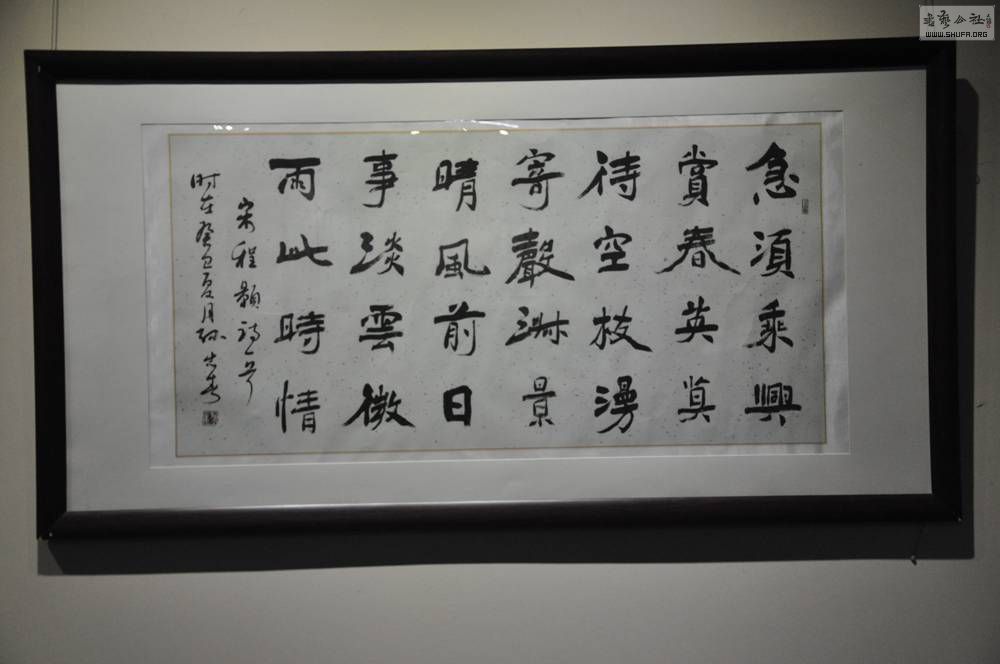 急須乘興
賞春英莫
待空枝漫
寄聲淑景
晴風前日
事淡雲微
雨此時情
宋程顥詩一首
時在癸巳夏月孫
書藝公社
WWW.SHUFA.ORG